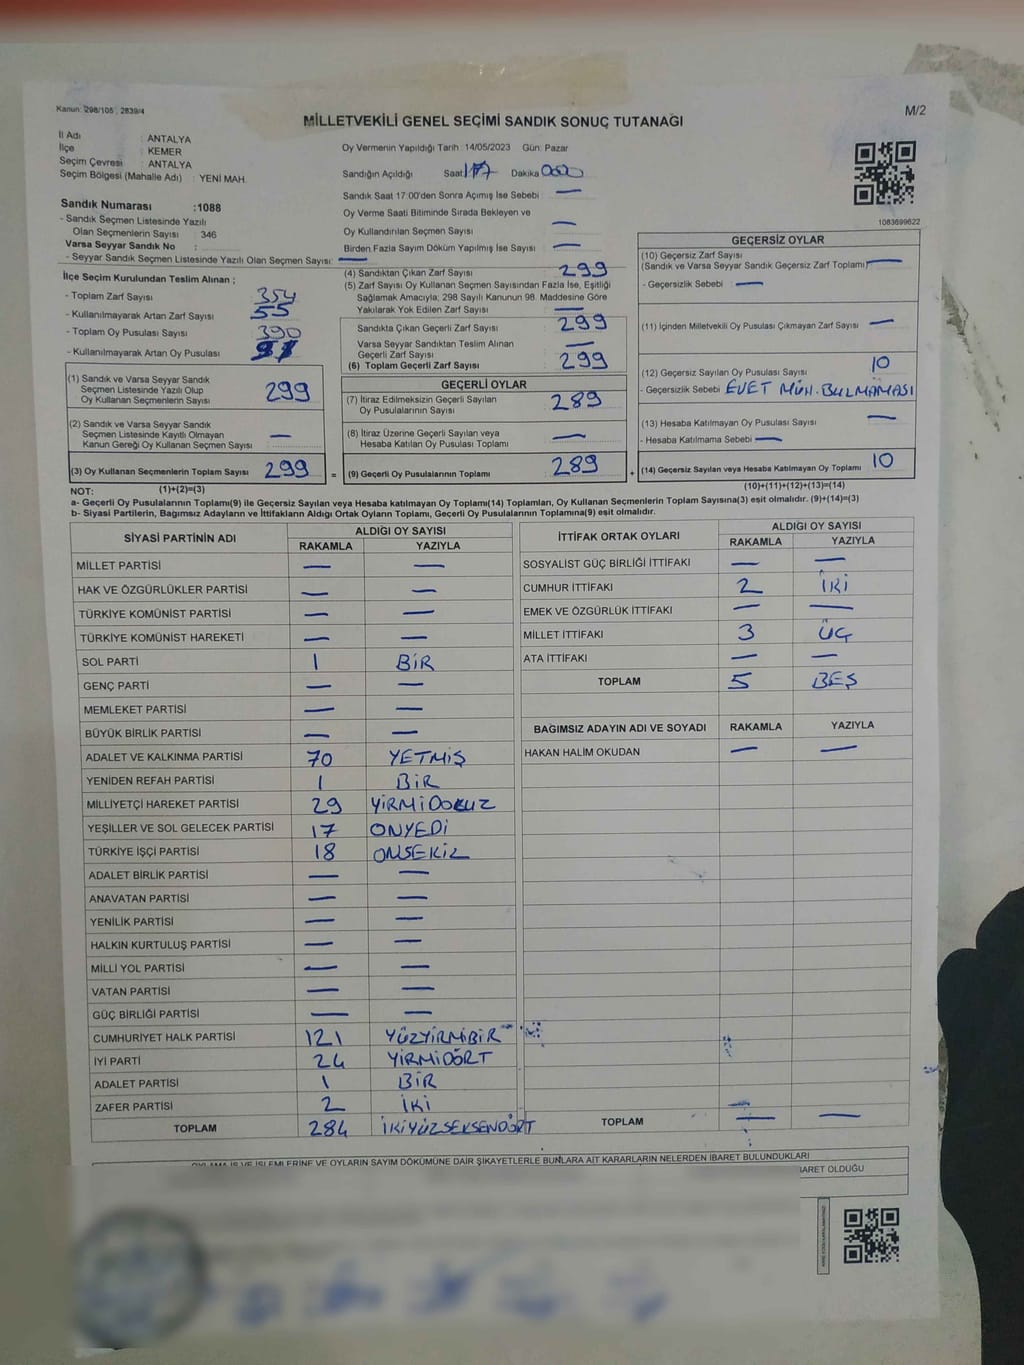 Kanun: 298/105 , 2839/4
M/2
MİLLETVEKİLİ GENEL SEÇİMİ SANDIK SONUÇ TUTANAĞI
İl Adı : ANTALYA
İlçe : KEMER
Seçim Çevresi : ANTALYA
Seçim Bölgesi (Mahalle Adı) : YENİ MAH.
Sandık Numarası :1088
- Sandık Seçmen Listesinde Yazılı
Olan Seçmenlerin Sayısı : 346
Varsa Seyyar Sandık No :
- Seyyar Sandık Seçmen Listesinde Yazılı Olan Seçmen Sayısı: —
Oy Vermenin Yapıldığı Tarih :14/05/2023 Gün: Pazar
Sandığın Açıldığı Saat Dakika
Sandık Saat 17:00'den Sonra Açımış İse Sebebi —
Oy Verme Saati Bitiminde Sırada Bekleyen ve
Oy Kullandırılan Seçmen Sayısı —
Birden Fazla Sayım Döküm Yapılmış İse Sayısı —
1083699622
İlçe Seçim Kurulundan Teslim Alınan ;
- Toplam Zarf Sayısı 354
- Kullanılmayarak Artan Zarf Sayısı 55
- Toplam Oy Pusulası Sayısı 390
- Kullanılmayarak Artan Oy Pusulası
(1) Sandık ve Varsa Seyyar Sandık
Seçmen Listesinde Yazılı Olup
Oy Kullanan Seçmenlerin Sayısı 299
(2) Sandık ve Varsa Seyyar Sandık
Seçmen Listesinde Kayıtlı Olmayan
Kanun Gereği Oy Kullanan Seçmen Sayısı —
(3) Oy Kullanan Seçmenlerin Toplam Sayısı 299 =
(4) Sandıktan Çıkan Zarf Sayısı 299
(5) Zarf Sayısı Oy Kullanan Seçmen Sayısından Fazla İse, Eşitliği
Sağlamak Amacıyla; 298 Sayılı Kanunun 98. Maddesine Göre
Yakılarak Yok Edilen Zarf Sayısı —
Sandıkta Çıkan Geçerli Zarf Sayısı 299
Varsa Seyyar Sandıktan Teslim Alınan
Geçerli Zarf Sayısı —
(6) Toplam Geçerli Zarf Sayısı 299
GEÇERLİ OYLAR
(7) İtiraz Edilmeksizin Geçerli Sayılan
Oy Pusulalarının Sayısı 289
(8) İtiraz Üzerine Geçerli Sayılan veya
Hesaba Katılan Oy Pusulası Toplamı —
(9) Geçerli Oy Pusulalarının Toplamı 289 +
GEÇERSİZ OYLAR
(10) Geçersiz Zarf Sayısı
(Sandık ve Varsa Seyyar Sandık Geçersiz Zarf Toplamı) —
- Geçersizlik Sebebi : —
(11) İçinden Milletvekili Oy Pusulası Çıkmayan Zarf Sayısı —
(12) Geçersiz Sayılan Oy Pusulası Sayısı 10
- Geçersizlik Sebebi EVET MÜH. BULMAMASI
(13) Hesaba Katılmayan Oy Pusulası Sayısı —
- Hesaba Katılmama Sebebi —
(14) Geçersiz Sayılan veya Hesaba Katılmayan Oy Toplamı 10
NOT: (1)+(2)=(3)
(10)+(11)+(12)+(13)=(14)
a- Geçerli Oy Pusulalarının Toplamı(9) ile Geçersiz Sayılan veya Hesaba katılmayan Oy Toplamı(14) Toplamları, Oy Kullanan Seçmenlerin Toplam Sayısına(3) eşit olmalıdır. (9)+(14)=(3)
b- Siyasi Partilerin, Bağımsız Adayların ve İttifakların Aldığı Ortak Oyların Toplamı, Geçerli Oy Pusulalarının Toplamına(9) eşit olmalıdır.
SİYASİ PARTİNİN ADI ALDIĞI OY SAYISI
RAKAMLA YAZIYLA
MİLLET PARTİSİ — —
HAK VE ÖZGÜRLÜKLER PARTİSİ — —
TÜRKİYE KOMÜNİST PARTİSİ — —
TÜRKİYE KOMÜNİST HAREKETİ — —
SOL PARTİ 1 BİR
GENÇ PARTİ — —
MEMLEKET PARTİSİ — —
BÜYÜK BİRLİK PARTİSİ — —
ADALET VE KALKINMA PARTİSİ 70 YETMİŞ
YENİDEN REFAH PARTİSİ 1 BİR
MİLLİYETÇİ HAREKET PARTİSİ 29 YİRMİDOKUZ
YEŞİLLER VE SOL GELECEK PARTİSİ 17 ONYEDİ
TÜRKİYE İŞÇİ PARTİSİ 18 ONSEKİZ
ADALET BİRLİK PARTİSİ — —
ANAVATAN PARTİSİ — —
YENİLİK PARTİSİ — —
HALKIN KURTULUŞ PARTİSİ — —
MİLLİ YOL PARTİSİ — —
VATAN PARTİSİ — —
GÜÇ BİRLİĞİ PARTİSİ — —
CUMHURİYET HALK PARTİSİ 121 YÜZYİRMİBİR
İYİ PARTİ 24 YİRMİDÖRT
ADALET PARTİSİ 1 BİR
ZAFER PARTİSİ 2 İKİ
TOPLAM 284 İKİYÜZSEKSENDÖRT
İTTİFAK ORTAK OYLARI ALDIĞI OY SAYISI
RAKAMLA YAZIYLA
SOSYALİST GÜÇ BİRLİĞİ İTTİFAKI — —
CUMHUR İTTİFAKI 2 İKİ
EMEK VE ÖZGÜRLÜK İTTİFAKI — —
MİLLET İTTİFAKI 3 ÜÇ
ATA İTTİFAKI — —
TOPLAM 5 BEŞ
BAĞIMSIZ ADAYIN ADI VE SOYADI RAKAMLA YAZIYLA
HAKAN HALİM OKUDAN — —
TOPLAM — —
OYLAMA İŞ VE İŞLEMLERİNE VE OYLARIN SAYIM DÖKÜMÜNE DAİR ŞİKAYETLERLE BUNLARA AİT KARARLARIN NELERDEN İBARET BULUNDUKLARI
BARET OLDUĞU